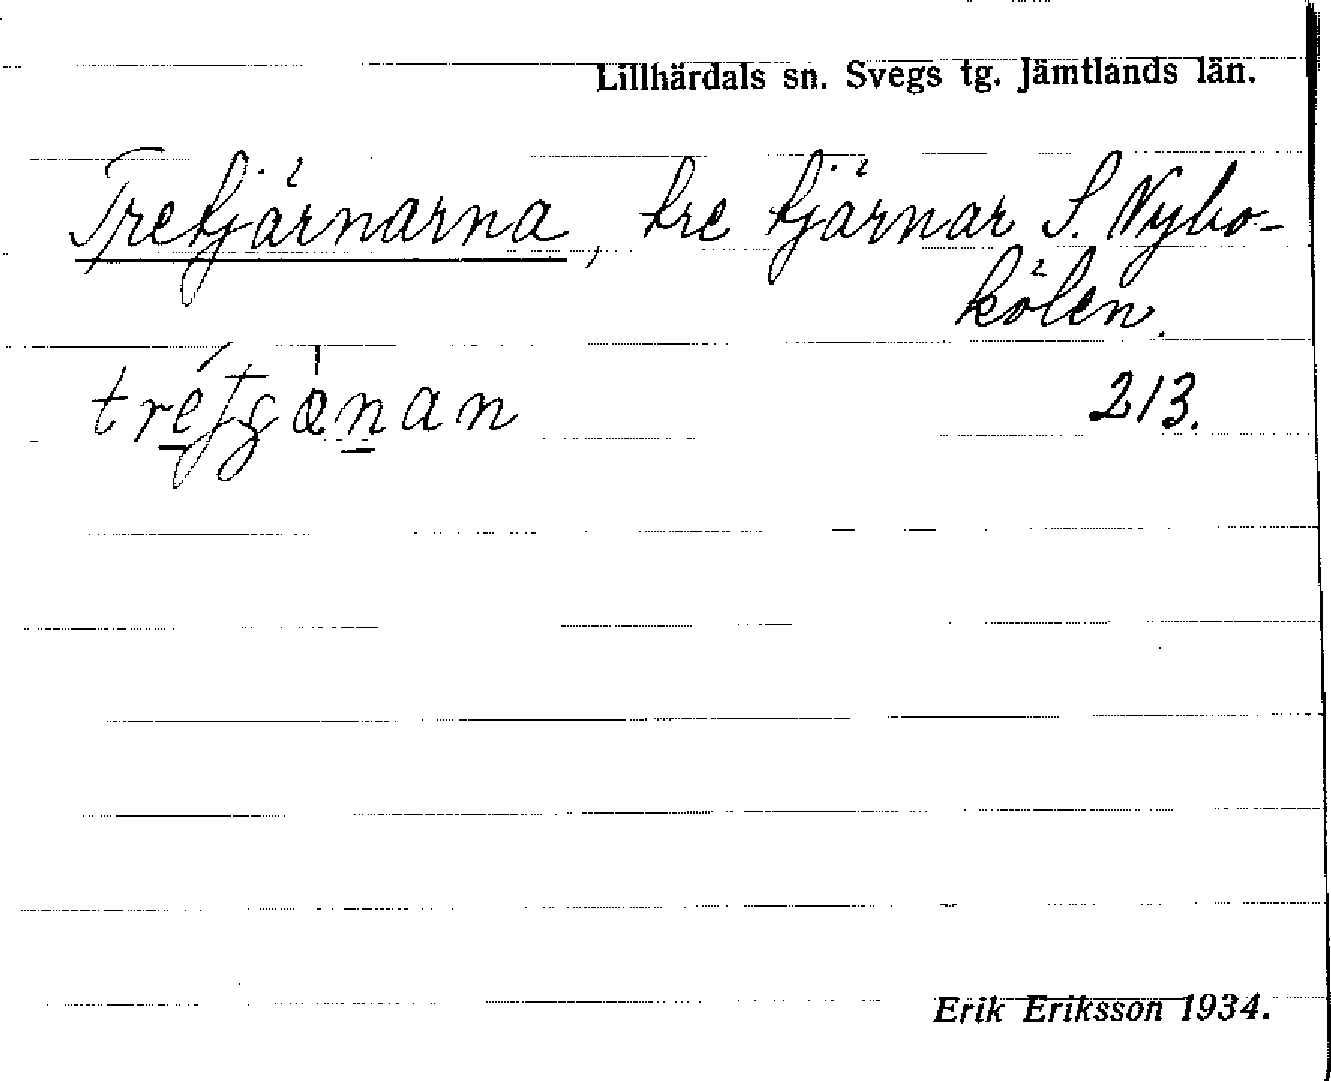 Lillhärdals sn. Svegs tg. Jämtlands län.
Tretjärnarna, tre tjärnar S. Nybo-
kölen.
213.
Erik Eriksson 1934.